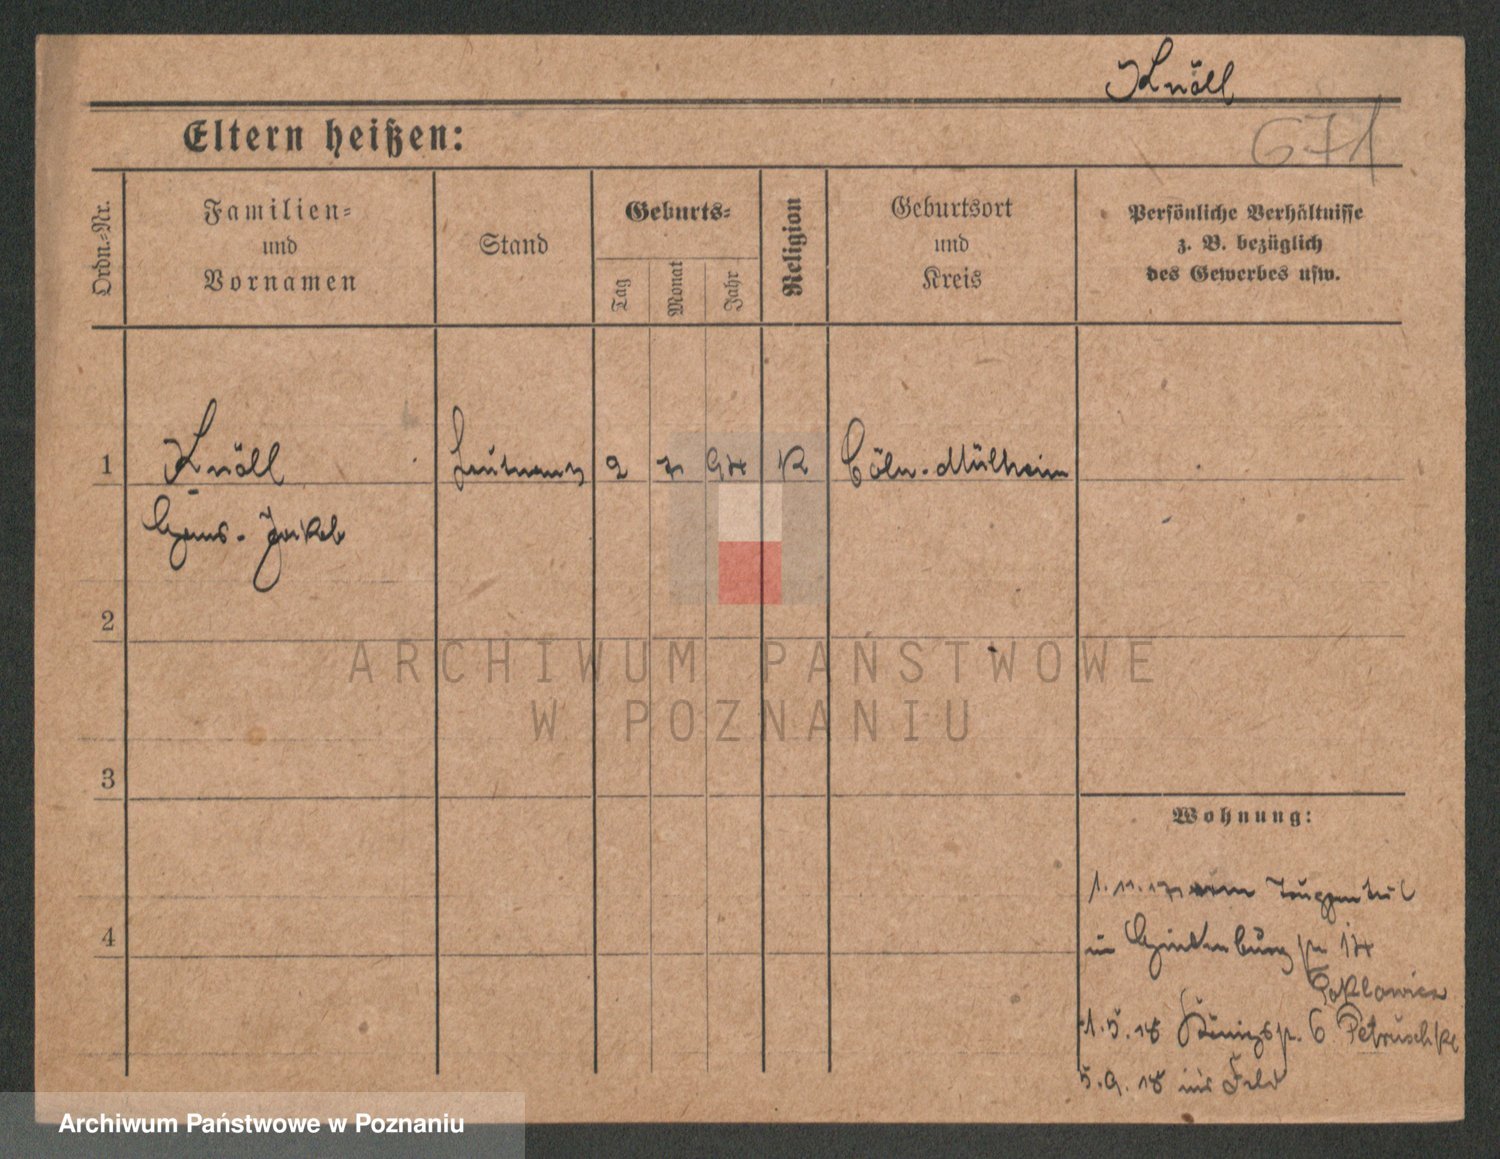 Knöll
671
Eltern heißen:
Ordn.-Nr.
Familien-
und
Vornamen
Stand
Geburts-
Tag
Monat
Jahr
Religion
Geburtsort
und
Kreis
Persönliche Verhältnisse
z. B. bezüglich
des Gewerbes usw.
1
Knöll
Leutnant
2
7
94
K
Cöln-Mülheim
Hans-Jakob
2
ARCHIWUM PAŃSTWOWE
W POZNANIU
3
Wohnung:
1.11.17 Truppenteil
4
in Hindenburg 14
1.5.18 Königspl. 6 Petruschke
5.9.18 ins Feld
Archiwum Państwowe w Poznaniu